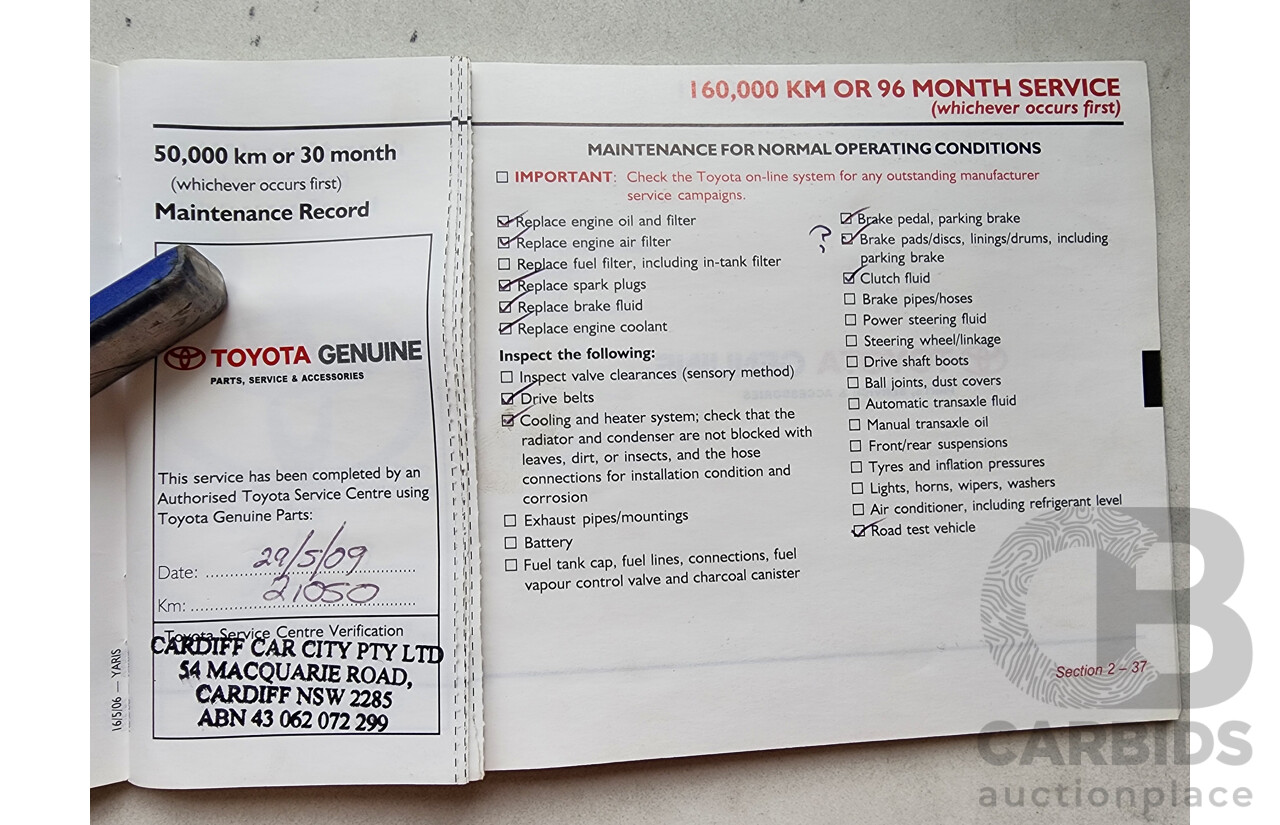 50,000 km or 30 month
(whichever occurs first)
Maintenance Record
TOYOTA GENUINE
PARTS, SERVICE & ACCESSORIES
This service has been completed by an
Authorised Toyota Service Centre using
Toyota Genuine Parts:
Date: 29/5/09
Km: 21050
Toyota Service Centre Verification
CARDIFF CAR CITY PTY LTD
54 MACQUARIE ROAD,
CARDIFF NSW 2285
ABN 43 062 072 299
16/5/06 — YARIS
160,000 KM OR 96 MONTH SERVICE
(whichever occurs first)
MAINTENANCE FOR NORMAL OPERATING CONDITIONS
IMPORTANT: Check the Toyota on-line system for any outstanding manufacturer
service campaigns.
Replace engine oil and filter
Replace engine air filter
Replace fuel filter, including in-tank filter
Replace spark plugs
Replace brake fluid
Replace engine coolant
Inspect the following:
Inspect valve clearances (sensory method)
Drive belts
Cooling and heater system; check that the
radiator and condenser are not blocked with
leaves, dirt, or insects, and the hose
connections for installation condition and
corrosion
Exhaust pipes/mountings
Battery
Fuel tank cap, fuel lines, connections, fuel
vapour control valve and charcoal canister
Brake pedal, parking brake
? Brake pads/discs, linings/drums, including
parking brake
Clutch fluid
Brake pipes/hoses
Power steering fluid
Steering wheel/linkage
Drive shaft boots
Ball joints, dust covers
Automatic transaxle fluid
Manual transaxle oil
Front/rear suspensions
Tyres and inflation pressures
Lights, horns, wipers, washers
Air conditioner, including refrigerant level
Road test vehicle
Section 2 – 37
CB
CARBIDS
auctionplace